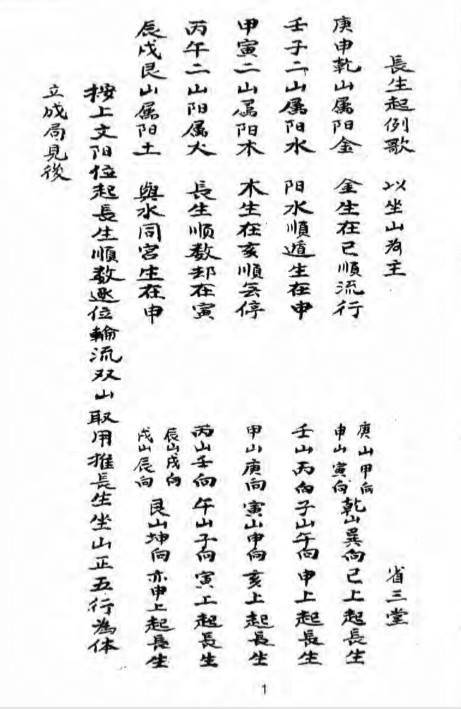 長生起例歌 以坐山為主 省三堂
庚申乾山属阳金 金生在巳順流行 庚山甲向 申山寅向 乾山巽向巳上起長生
壬子二山属阳水 阳水順遁生在申 壬山丙向子山午向申上起長生
甲寅二山属阳木 木生在亥順無停 甲山庚向寅山申向亥上起長生
丙午二山阳属火 長生順数却在寅 丙山壬向午山子向寅上起長生
辰戌艮山属阳土 與水同宮生在申 辰山戌向 戌山辰向 艮山坤向亦申上起長生
按上文阳位起長生順数逐位輪流双山取用推長生坐山正五行為体
立成局見後
1